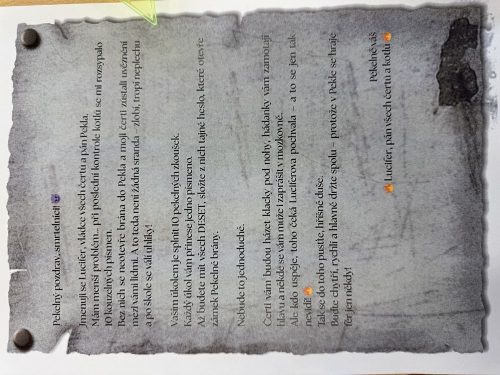 Pekelný pozdrav, smrtelníci! 😈
Jmenuji se Lucifer, vládce všech čertů a pán Pekla.
Mám menší problém... při poslední kontrole kotlů se mi rozsypalo
10 kouzelných písmen.
Bez nich se neotevře brána do Pekla a moji čerti zůstali uvěznění
mezi vámi lidmi. A to teda není žádná sranda – zlobí, tropí neplechu
a po škole se válí uhlíky!
Vaším úkolem je splnit 10 pekelných zkoušek.
Každý úkol vám přinese jedno písmeno.
Až budete mít všech DESET, složte z nich tajné heslo, které otevře
zámek Pekelné brány.
Nebude to jednoduché.
Čerti vám budou házet klacky pod nohy, hádanky vám zamotají
hlavu a někde se vám může i zaprášit v mozkovně.
Ale kdo uspěje, toho čeká Luciferova pochvala – a to se jen tak
nevidí! 🔥
Tak do toho pusťte, hříšné duše.
Buďte chytří, rychlí a hlavně držte spolu – protože v Pekle se hraje
fér jen někdy!
Pekelně váš
🔥 Lucifer, pán všech čertů a kotlů 🔥